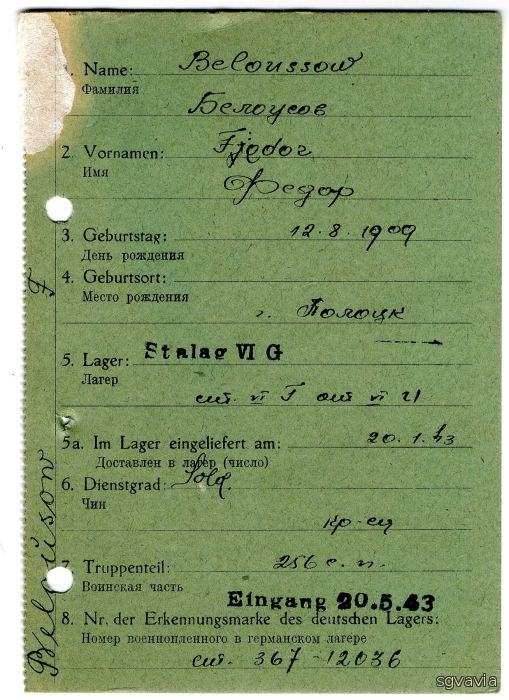 1. Name: Beloussow
Фамилия
Белоусов
2. Vornamen: Fjodor
Имя
Федор
3. Geburtstag: 12.8.1909
День рождения
4. Geburtsort:
Место рождения
г. Полоцк
5. Lager: Stalag VI G
Лагерь
шт. VI F
5a. Im Lager eingeliefert am: 20.1.43
Доставлен в лагер (число)
6. Dienstgrad: Sold.
Чин
кр-ец
7. Truppenteil: 256 с. п.
Воинская часть
Eingang 20.5.43
8. Nr. der Erkennungsmarke des deutschen Lagers:
Номер военнопленного в германском лагере
шт. 367-12036
Beloussow F
sgvavia